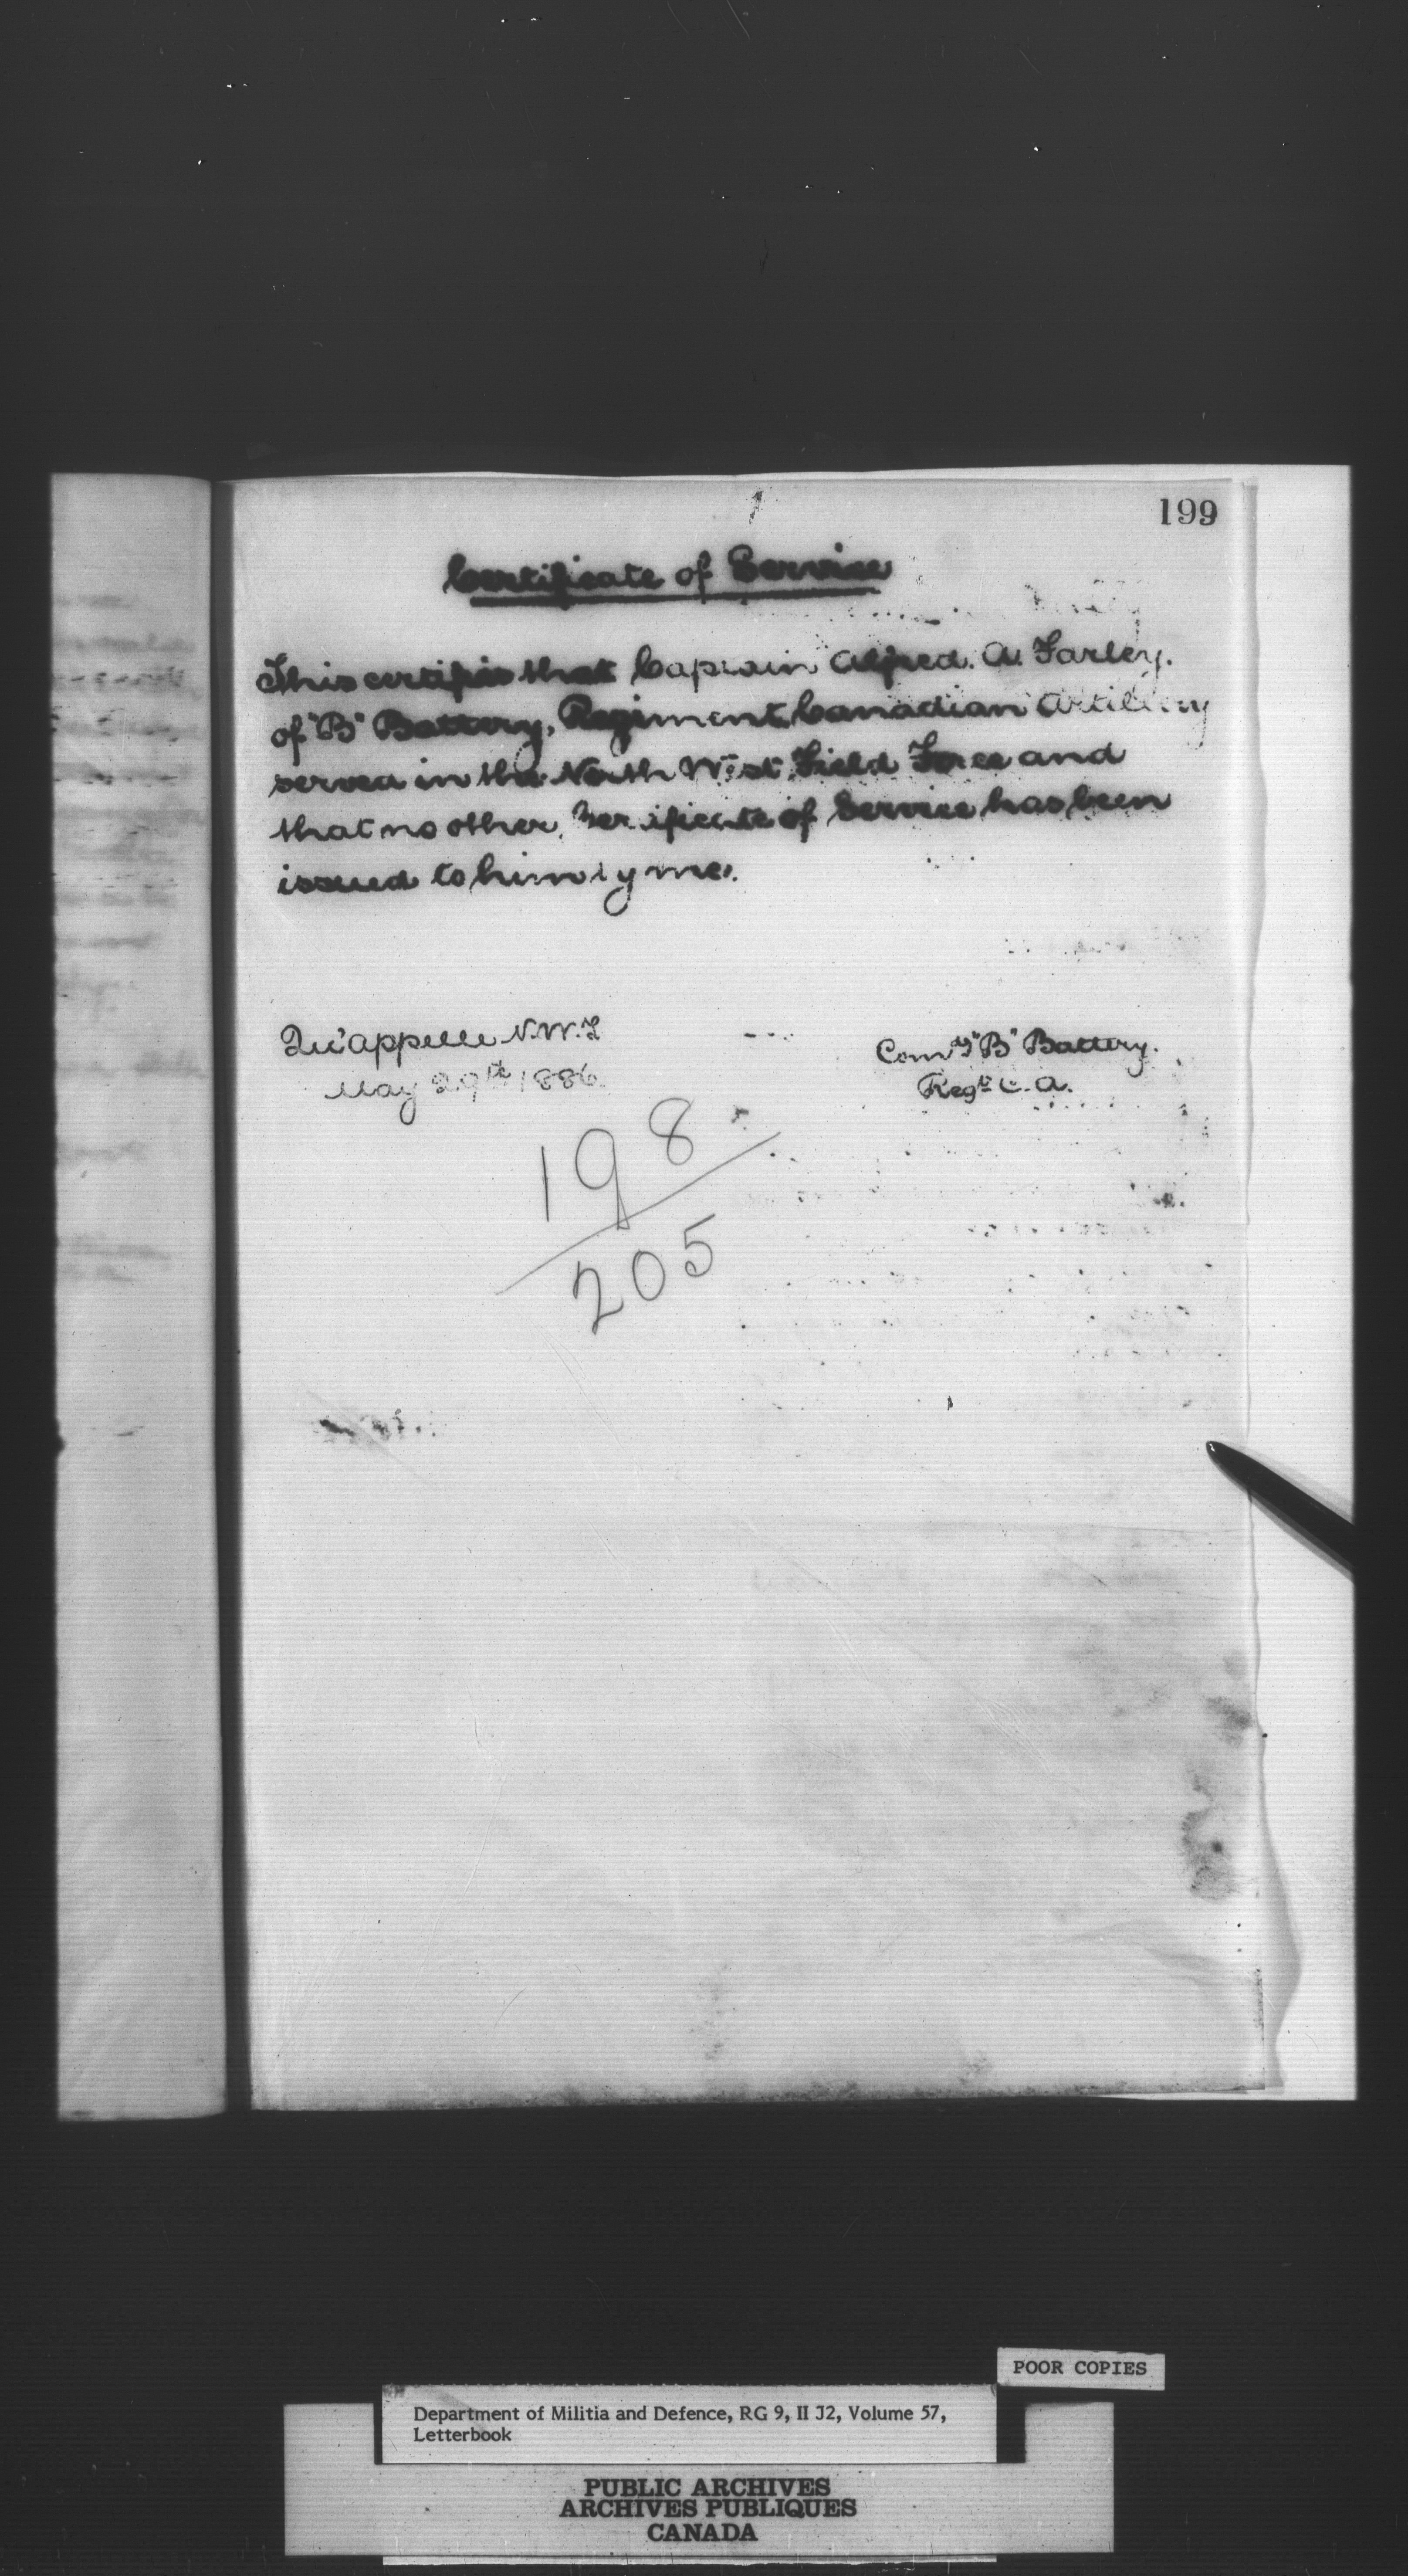 199
Certificate of Service
This certifies that Captain Alfred. A. Farley.
of "B" Battery, Regiment Canadian Artillery
served in the North West Field Force and
that no other Certificate of Service has been
issued to him by me.
Qu'appelle N.W.T
May 29th 1886
Comdg "B" Battery.
Regt C. A.
198
205
POOR COPIES
Department of Militia and Defence, RG 9, II J2, Volume 57,
Letterbook
PUBLIC ARCHIVES
ARCHIVES PUBLIQUES
CANADA